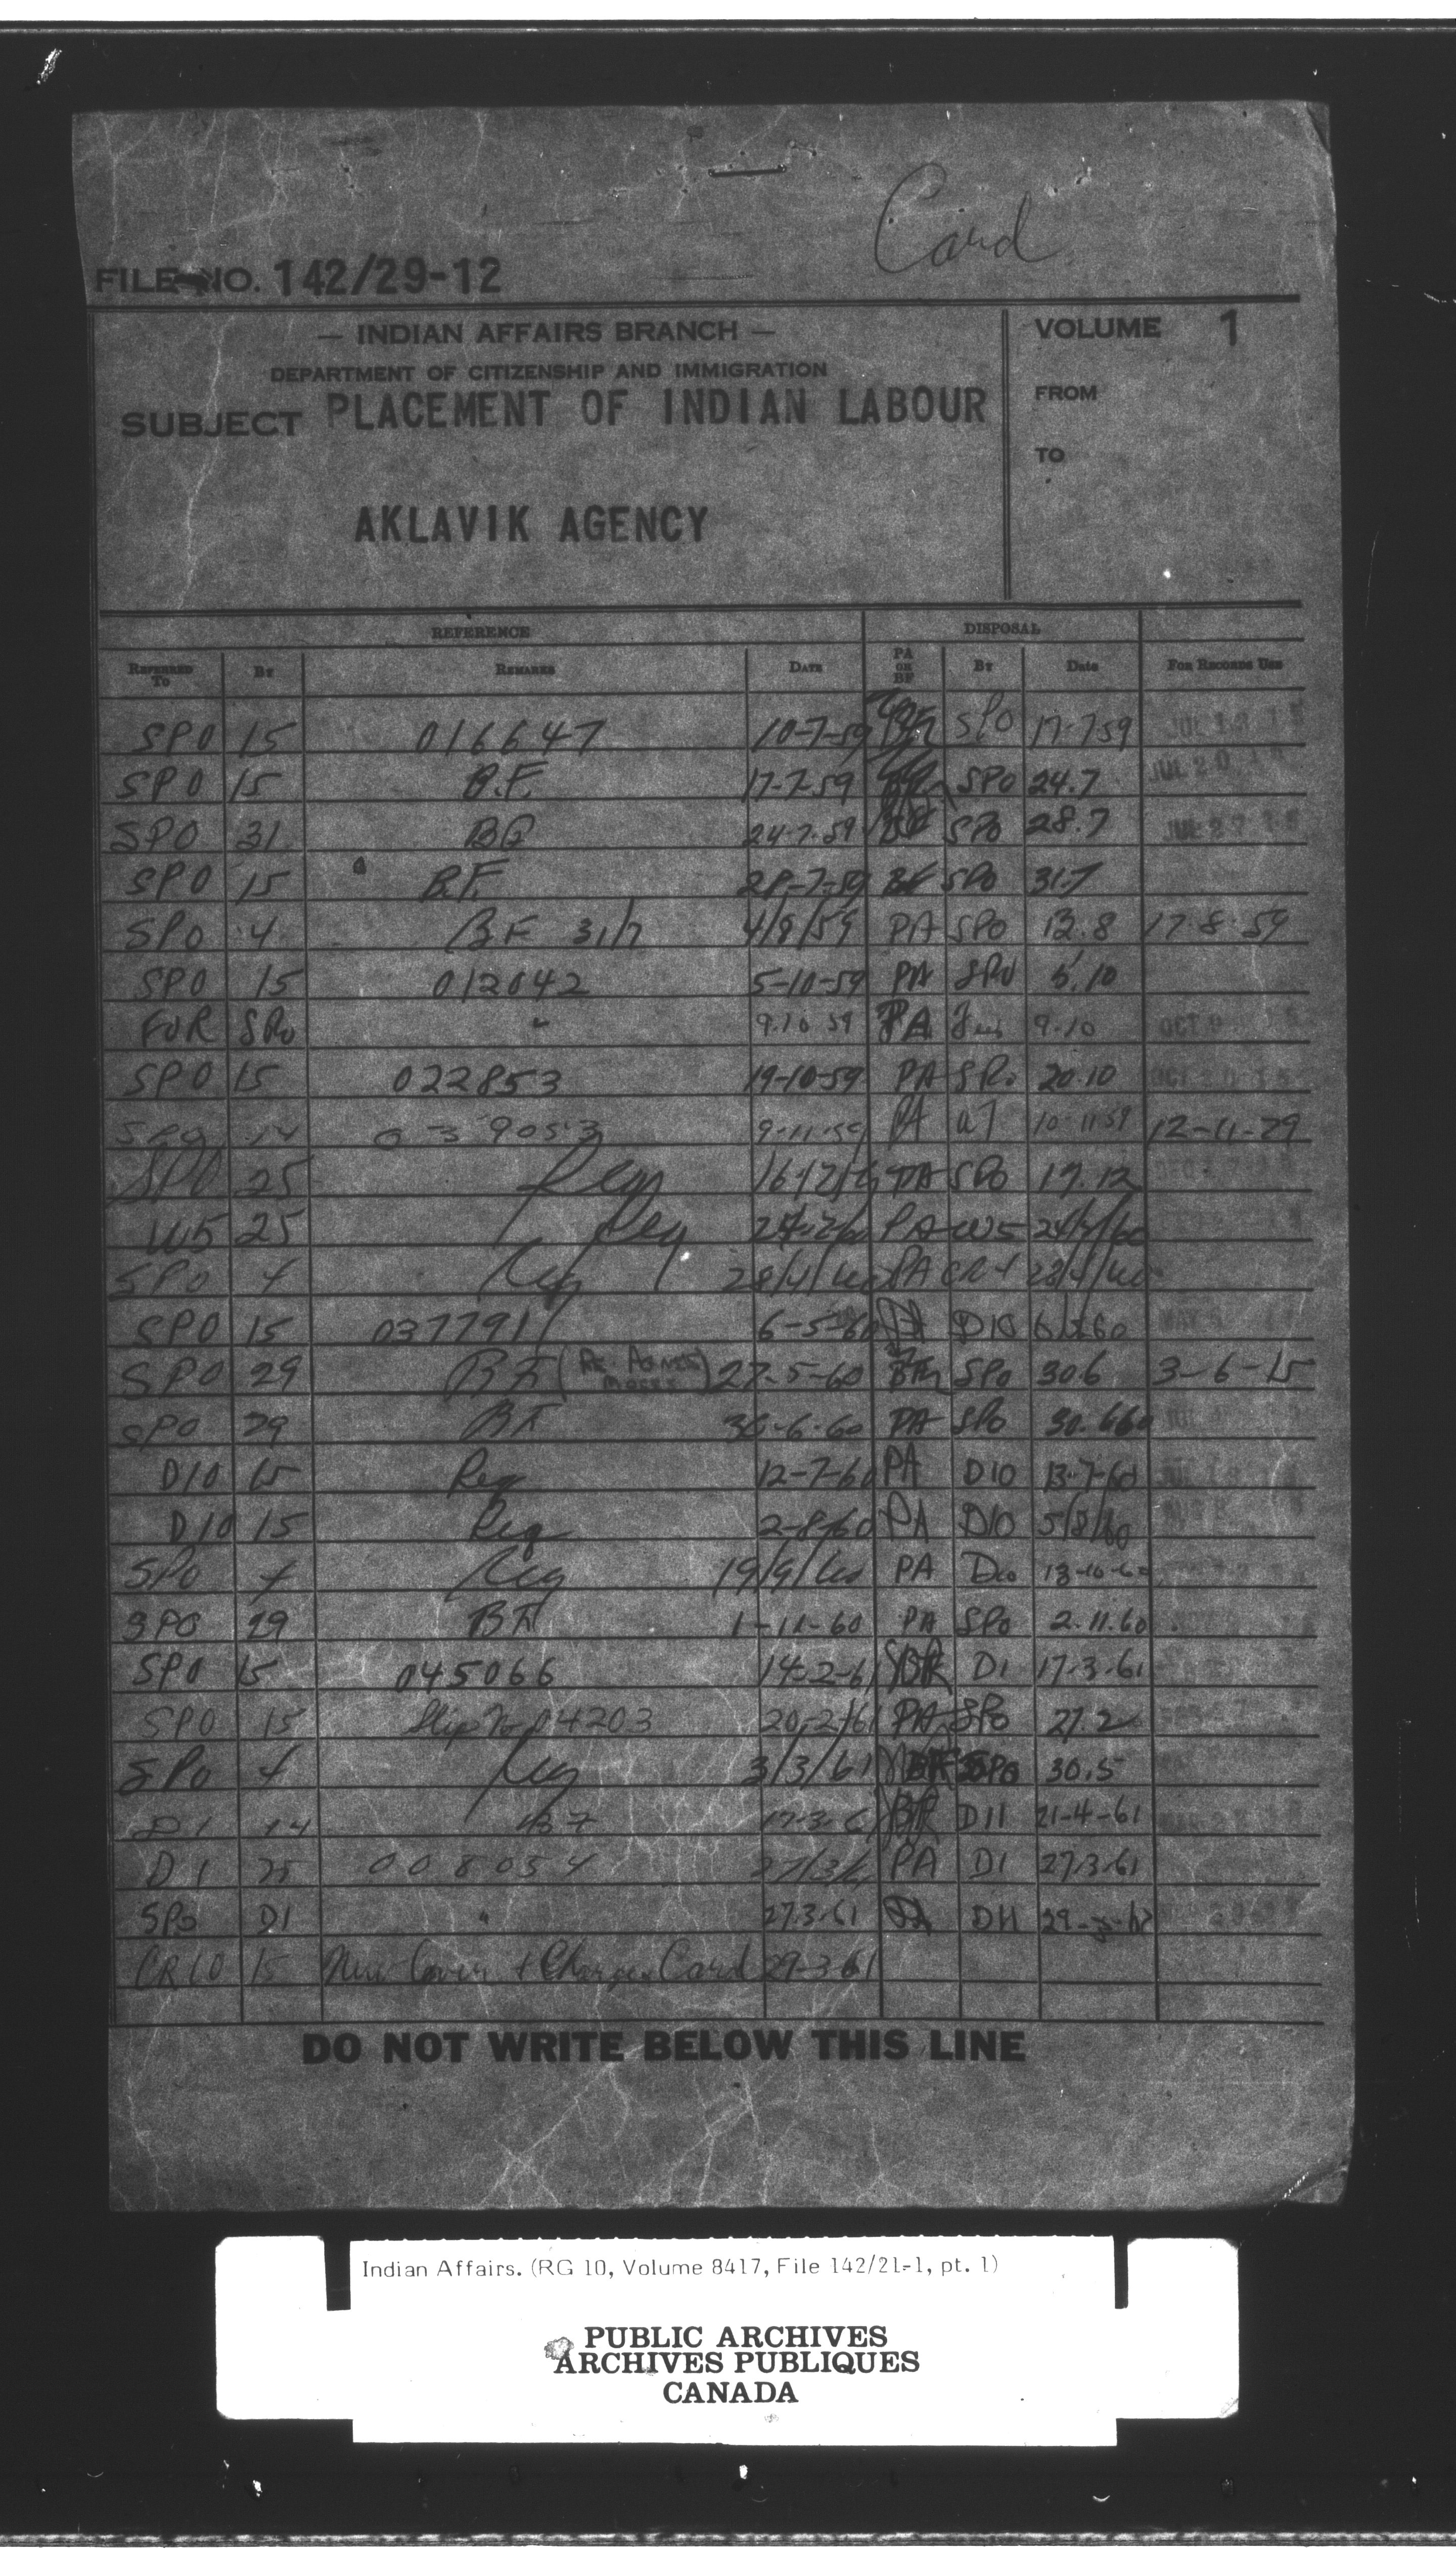 Card
FILE NO. 142/29-12
— INDIAN AFFAIRS BRANCH —
DEPARTMENT OF CITIZENSHIP AND IMMIGRATION
SUBJECT PLACEMENT OF INDIAN LABOUR
AKLAVIK AGENCY
VOLUME 1
FROM
TO
REFERENCE DISPOSAL
REFERRED TO BY REMARKS DATE PA OR BF BY DATE FOR RECORDS USE
SPO 15 016647 10-7-59 SPO 17-7-59
SPO 15 B.F. 17-7-59 SPO 24.7 JUL 20
SPO 31 24-7-59 SPO 28.7 JUL 27
SPO 15 B.F. 28-7-59 BF SPO 31.7
SPO 4 BF 31/7 4/8/59 PA SPO 13.8 17-8-59
SPO 15 012042 5-10-59 PA SPO 5.10
FOR SPO " 9.10 59 PA 9-10 OCT 9
SPO 15 022853 19-10-59 PA SPO 20.10 OCT 20
14 039053 9-11-59 PA 10-11-59 12-11-29
SPO 25 Req PA SPO 17.12
W5 25 Req PA W5
SPO 4 Req 28/4/60 PA CR4 28/4/60
SPO 15 037791 6-5-60 D10 MAY
SPO 29 BF (RE. AGNES MOSES) 27-5-60 SPO 30.6 3-6-15
SPO 29 BF 30-6-60 PA SPO 30.6.60
D10 15 Req 12-7-60 PA D10 13-7-60
D10 15 Req 2-8-60 PA D10 5/8/60
SPO 4 Req 19/9/60 PA D10 13-10-60
SPO 29 BF 1-11-60 PA SPO 2.11.60
SPO 15 045066 14-2-61 D1 17-3-61
SPO 15 Slip No 04203 20/2/61 PA SPO 27.2
SPO 4 Req 3/3/61 SPO 30.5
D1 14 BF 17-3-61 D11 21-4-61
D1 25 008054 27/3/61 PA D1 27-3-61
SPO D1 " 27-3-61
CR10 15 New Cover & Charge Card 29-3-61
DO NOT WRITE BELOW THIS LINE
Indian Affairs. (RG 10, Volume 8417, File 142/21-1, pt. 1)
PUBLIC ARCHIVES
ARCHIVES PUBLIQUES
CANADA